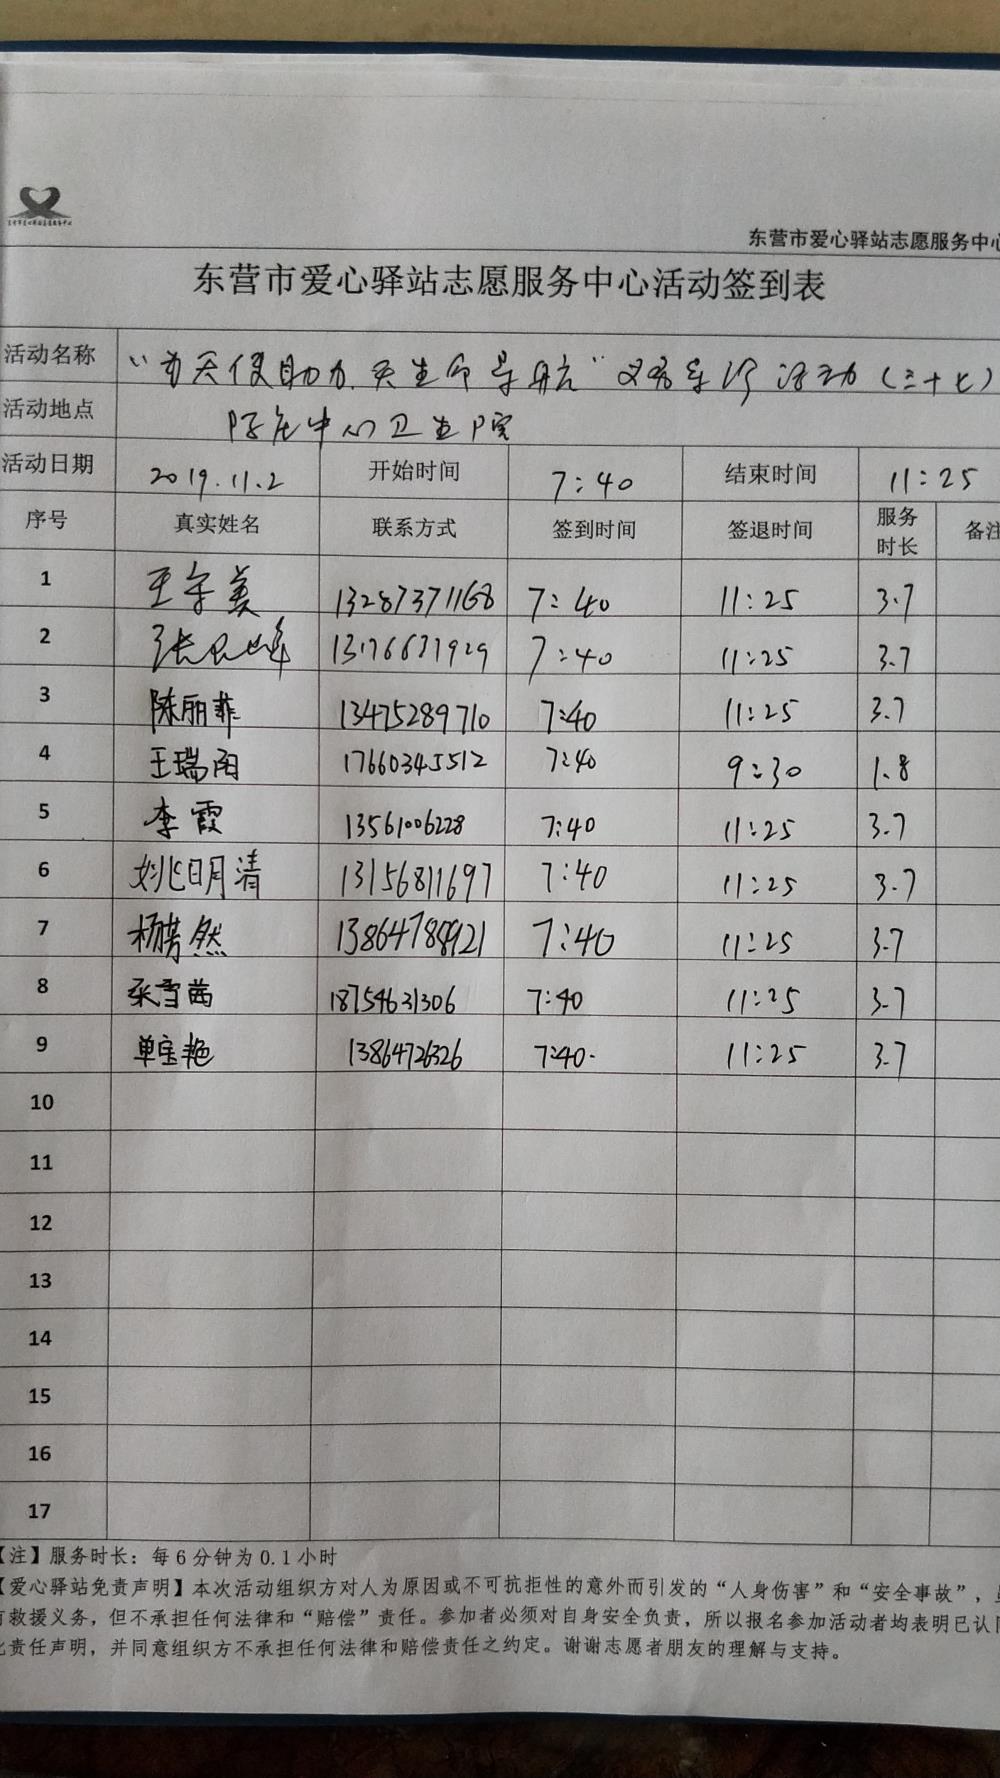 东营市爱心驿站志愿服务中心
东营市爱心驿站志愿服务中心活动签到表
活动名称 “为天使助力 为生命导航”义务导诊活动(三十七)
活动地点 陈庄中心卫生院
活动日期 2019.11.2 开始时间 7:40 结束时间 11:25
序号 真实姓名 联系方式 签到时间 签退时间 服务时长 备注
1 王美 13287371168 7:40 11:25 3.7
2 张峰 13176631929 7:40 11:25 3.7
3 陈丽菲 13475289710 7:40 11:25 3.7
4 王瑞雨 17660345512 7:40 9:30 1.8
5 李霞 13561006228 7:40 11:25 3.7
6 姚明清 13156811697 7:40 11:25 3.7
7 杨然 13864788921 7:40 11:25 3.7
8 张雪茜 18754631306 7:40 11:25 3.7
9 单宝艳 13864726326 7:40. 11:25 3.7
10
11
12
13
14
15
16
17
【注】服务时长：每6分钟为0.1小时
【爱心驿站免责声明】本次活动组织方对人为原因或不可抗拒性的意外而引发的“人身伤害”和“安全事故”，
救援义务，但不承担任何法律和“赔偿”责任。参加者必须对自身安全负责，所以报名参加活动者均表明已认同
责任声明，并同意组织方不承担任何法律和赔偿责任之约定。谢谢志愿者朋友的理解与支持。